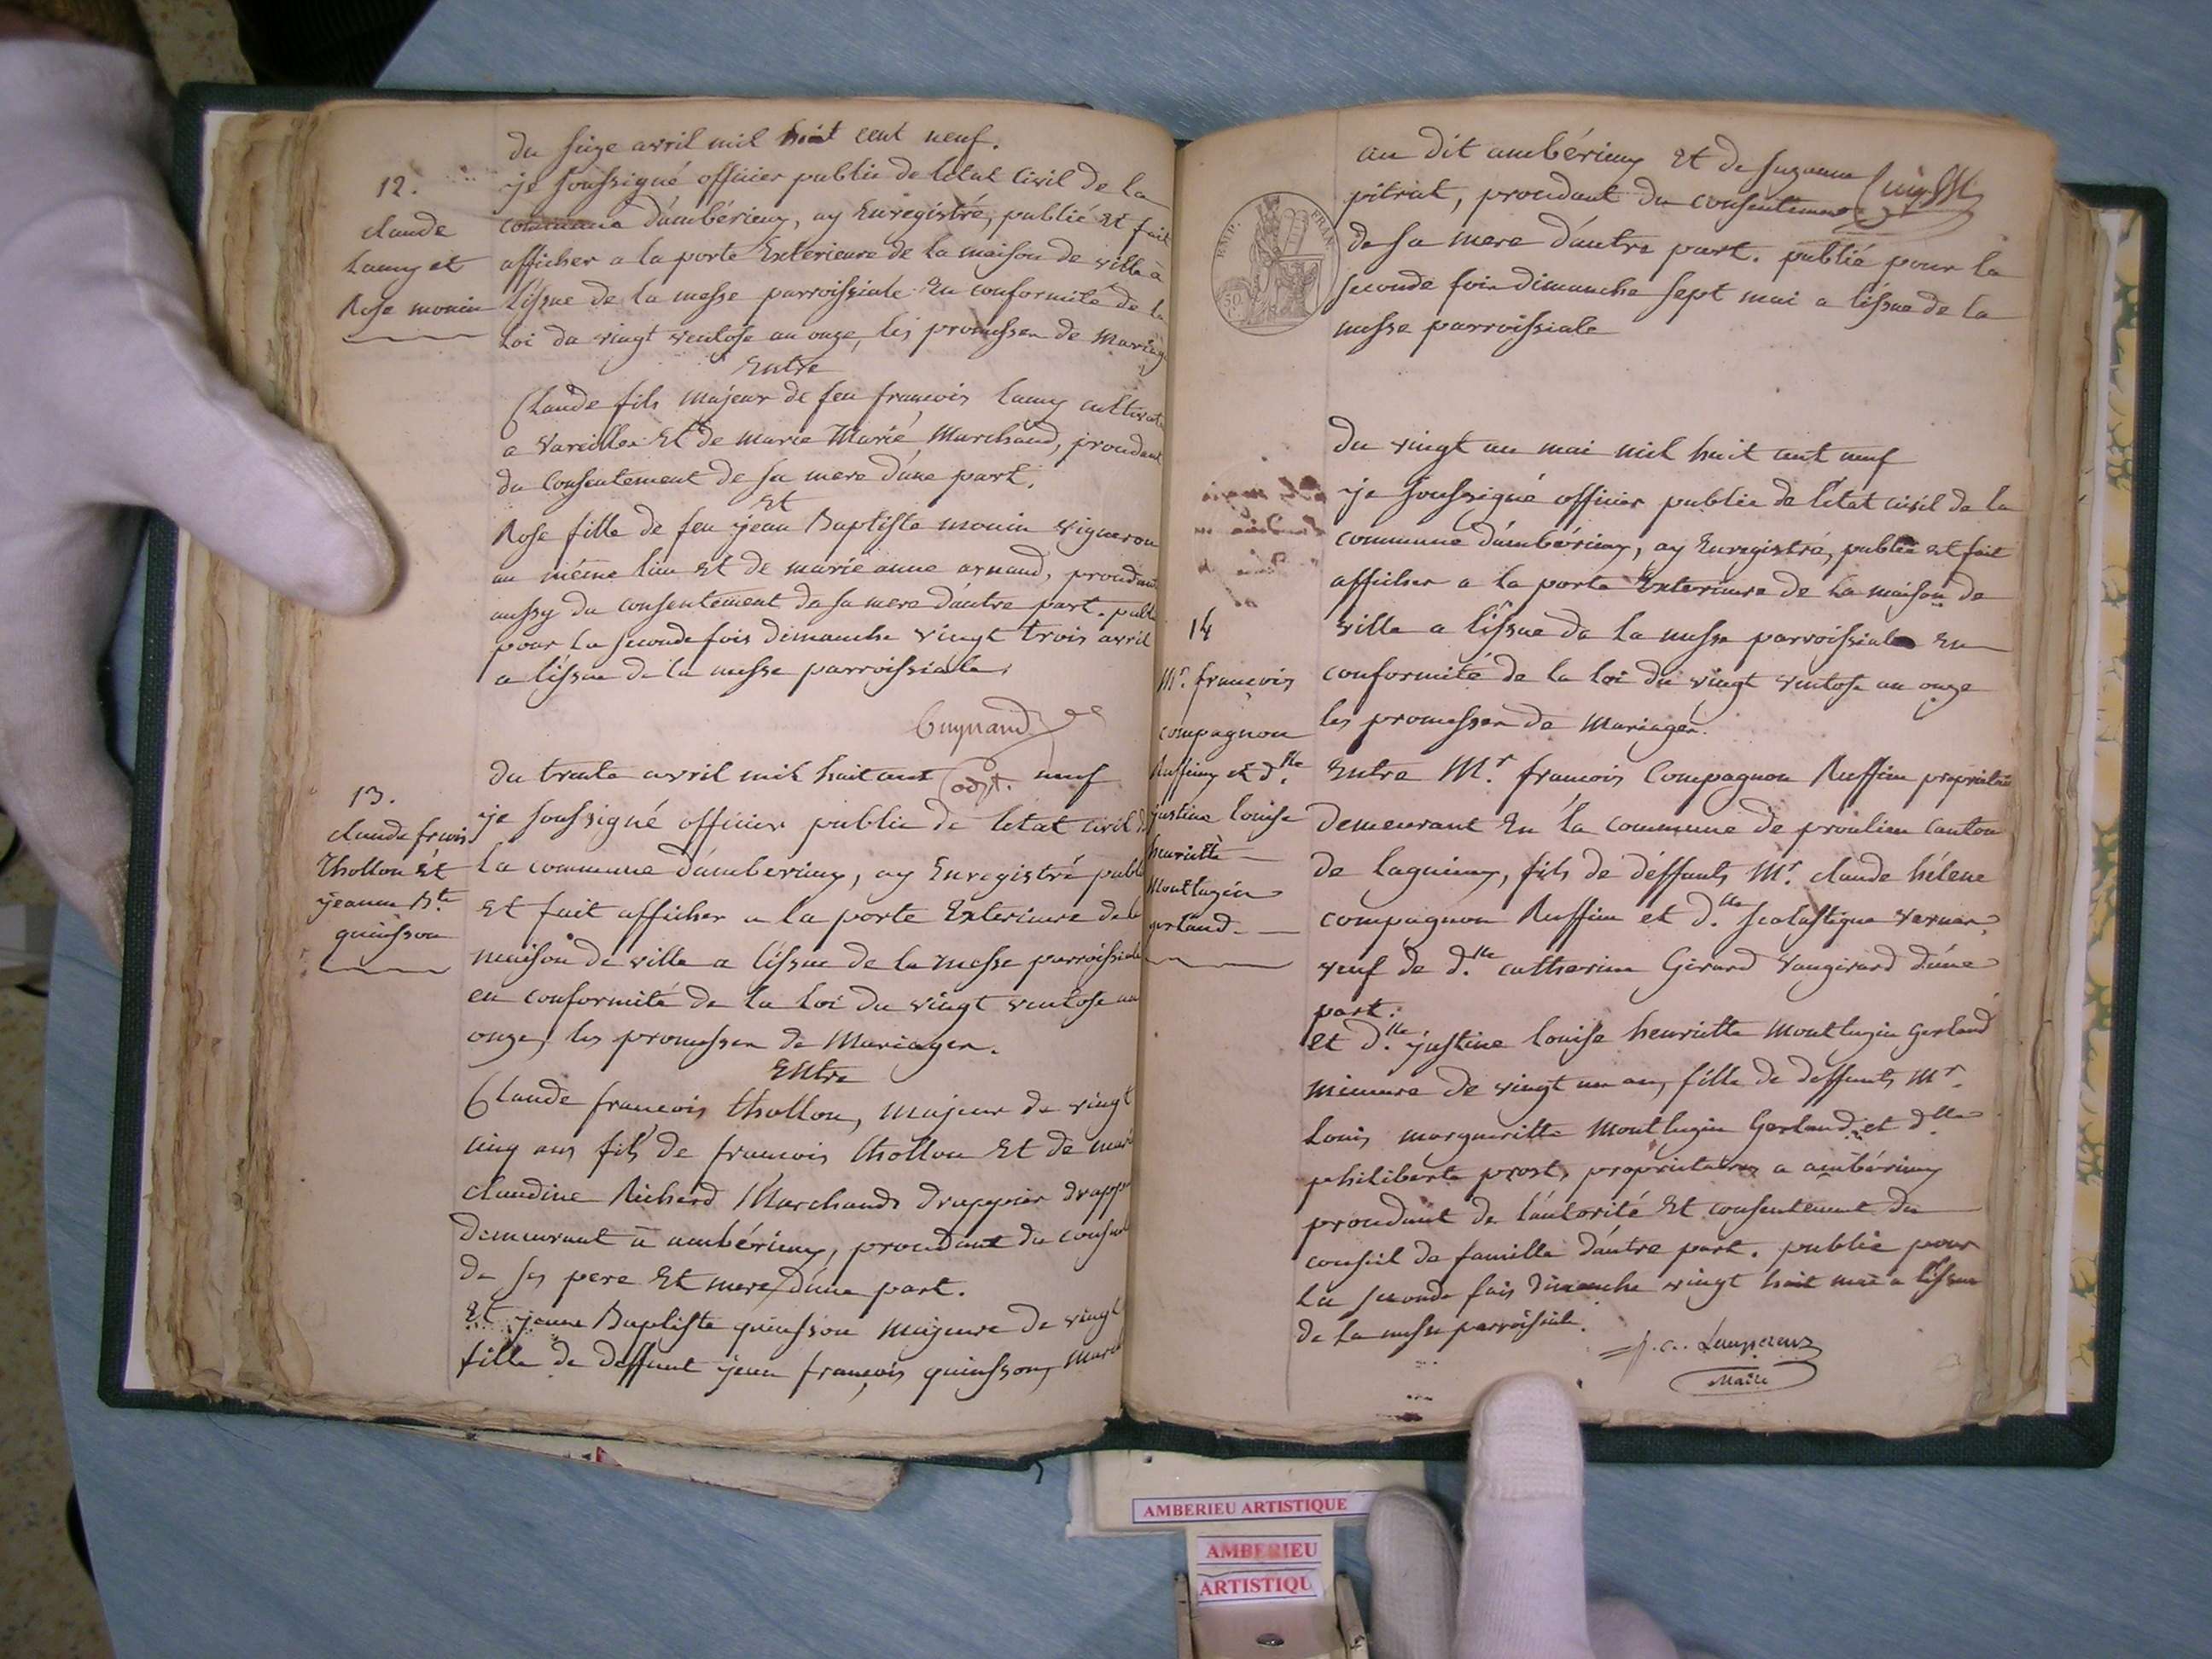 du seize avril mil huit cent neuf.
12.
claude
Lamy et
Rose monin
je soussigné officier public de letat Civil de la
commune d'ambérieux, ay Enregistré, publié et fait
afficher a la porte Exterieure de la maison de ville à
l'issue de la messe parroissiale En conformité de la
Loi du vingt ventose an onze, les promesses de Mariage
Entre
Claude fils majeur de feu francois Lamy cultivat
a Vareilles Et de marie Marié Marchand, procedant
du Consentement de sa mere d'une part.
Et
Rose fille de feu jean Baptiste monin vigneron
au même lieu Et de marie anne arnaud, procedant
aussy du consentement de sa mere d'autre part. publ
pour la seconde fois dimanche vingt trois avril
a l'issue de la messe parroissiale.
Guynand
adjt.
13.
claude frcois
Thollon Et
jeanne Bte
quinsson
du trente avril mil huit cent neuf
je soussigné officier public de letat Civil de
la commune d'amberieux, ay Enregistré publ
Et fait afficher a la porte Exterieure de la
maison de ville a l'issue de la messe parroissiale
en conformité de la Loi du vingt ventose an
onze, les promesses de Mariages.
Entre
Claude francois thollon, majeur de vingt
cinq ans fils de francois thollon Et de marie
claudine Richerd Marchands drappier drapp
demeurant a ambérieux, procedant du consent
de ses pere Et mere d'une part.
Et jeanne Baptiste quinsson majeure de vingt
fille de deffunt jean francois quinsson, March
au dit ambérieux Et de suzanne
pitrat, procedant du consentement
de sa mere d'autre part. publié pour la
seconde fois dimanche sept mai a l'issue de la
messe parroissiale
EMP. FRAN.
50
14
Mr. francois
compagnon
Ruffieux et dlle
justine louise
henriette
Montluzin
gerland.
du vingt un mai mil huit cent neuf
je soussigné officier public de l'état civil de la
commune d'ambérieux, ay Enregistré, publié et fait
afficher a la porte Exterieure de la maison de
ville a l'issue de la messe parroissiale En
conformité de la loi du vingt ventose an onze
les promesses de Mariages.
Entre Mr. francois Compagnon Ruffieu proprietaire
demeurant En la commune de proulieu Canton
de Lagnieux, fils de deffunts Mr. claude héléne
compagnon Ruffieu et dlle. scolastique
veuf de dlle catherine Girard Vaugirard d'une
part.
et dlle. justine louise henriette Montluzin Gerland
mineure de vingt un an, fille de deffunts Mr.
Louis margueritte Montluzin Gerland et dlle
philiberte prost, proprietaires a ambérieux
procedant de l'autorité Et consentement du
conseil de famille d'autre part. publié pour
la seconde fois dimanche vingt huit mai a l'issue
de la messe parroissiale.
Maire
AMBERIEU ARTISTIQUE
AMBERIEU
ARTISTIQU